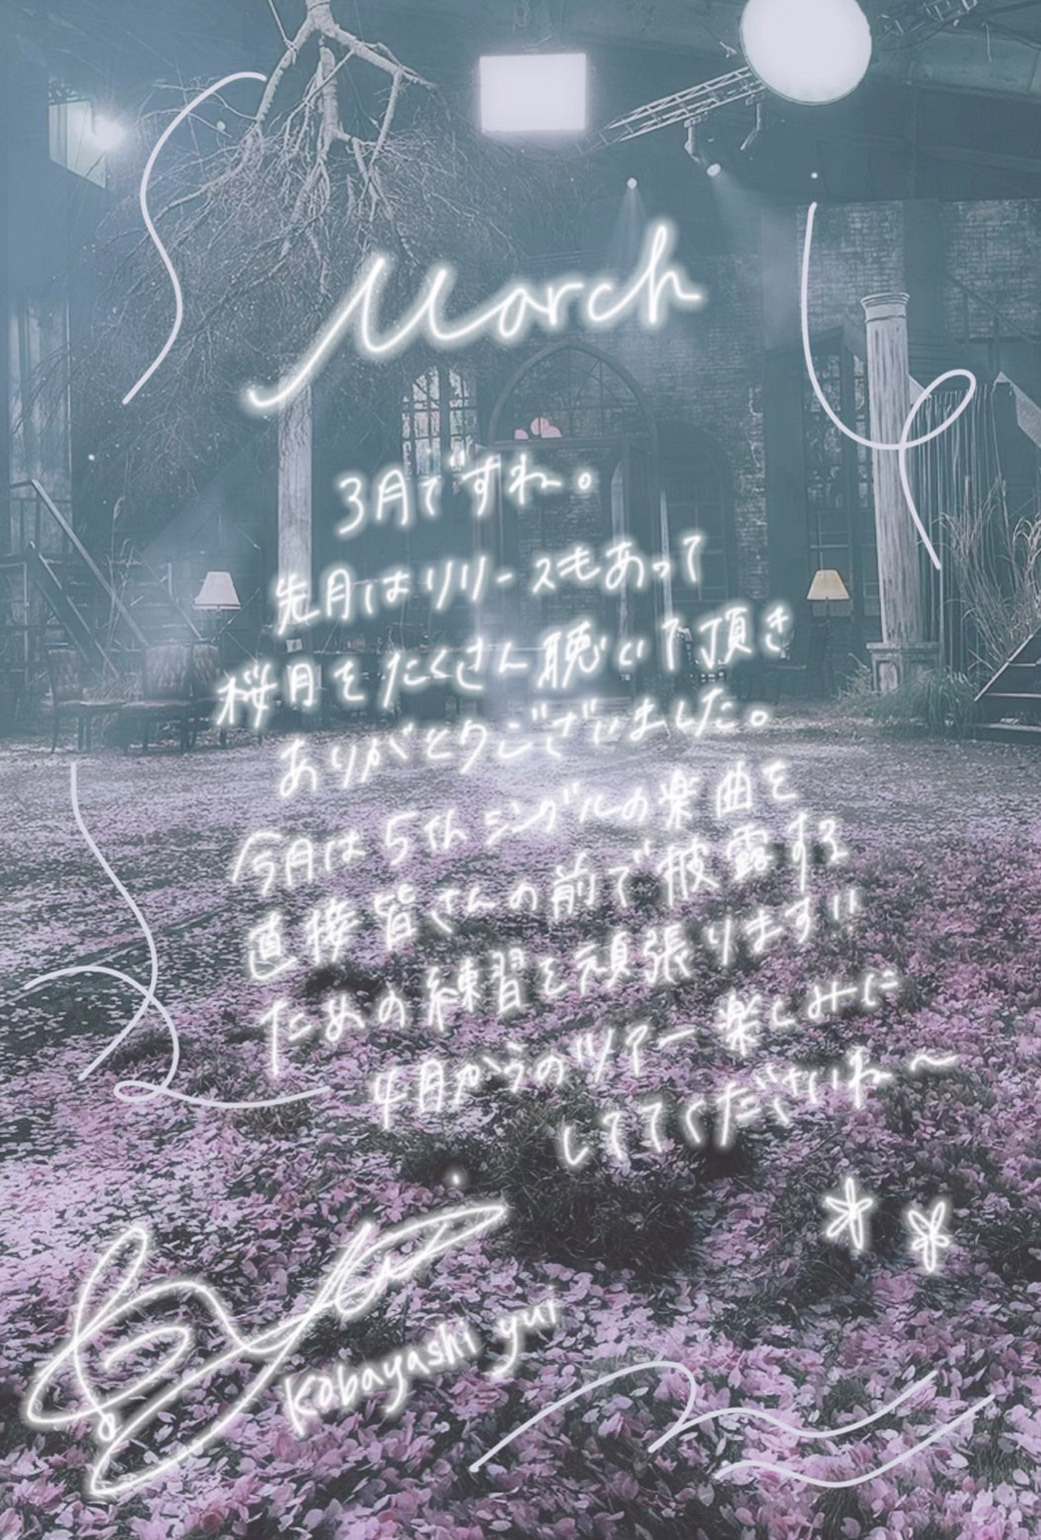 March
3月ですね。
先月はリリースもあって
桜月をたくさん聴いて頂き
ありがとうございました。
今月は5thシングルの楽曲を
直接皆さんの前で披露する
ための練習を頑張ります!!
4月からのツアー楽しみに
しててくださいね〜
kobayashi yui